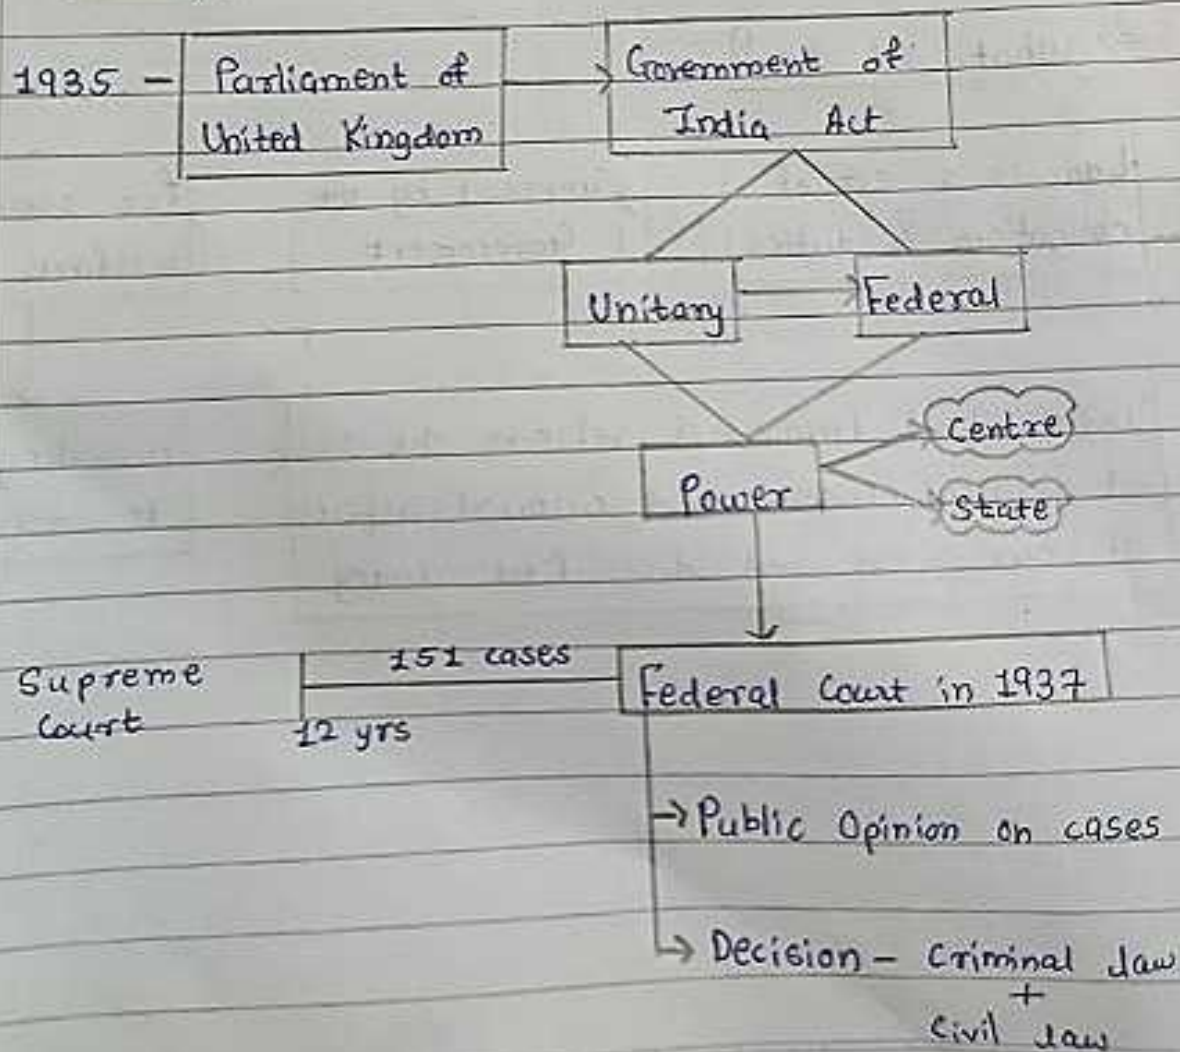 1935 - Parliament of
United Kingdom
Government of
India Act
Unitary
Federal
Power
Centre
State
Supreme
Court
151 cases
12 yrs
Federal Court in 1937
Public Opinion on cases
Decision - Criminal law
+
Civil law